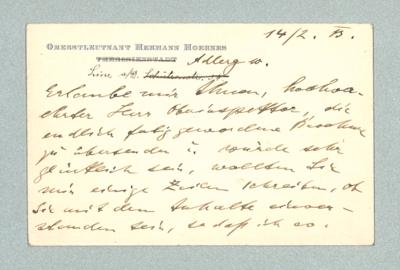 14/2. 13.
OBERSTLEUTNANT HERMANN HOERNES
THERESIENSTADT Adlerg
Linz a/D.
Erlaube mir Ihnen, hochver
ehrter Herr Oberinspektor, die
endlich fertig gewordene Broschure
zu übersenden u. würde sehr
glücklich sein, wollten Sie
mir einige Zeilen schreiben, ob
Sie mit dem Inhalte einver-
standen sein, so daß ich so.